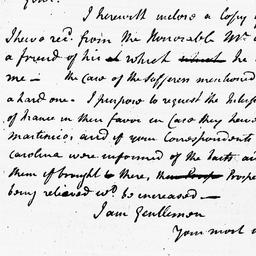 I herewith enclose a Copy o
I have recd. from the Honorable Mr.
a friend of his at which which he
me — the case of the sufferers mentioned
a hard one. I purpose to request the
of France in their favor in case they have
martinico, and if your Correspondents
Carolina were informed of the facts
them if brought to there, the Prospe
being relieved wd. be increased —
I am Gentlemen
Your most